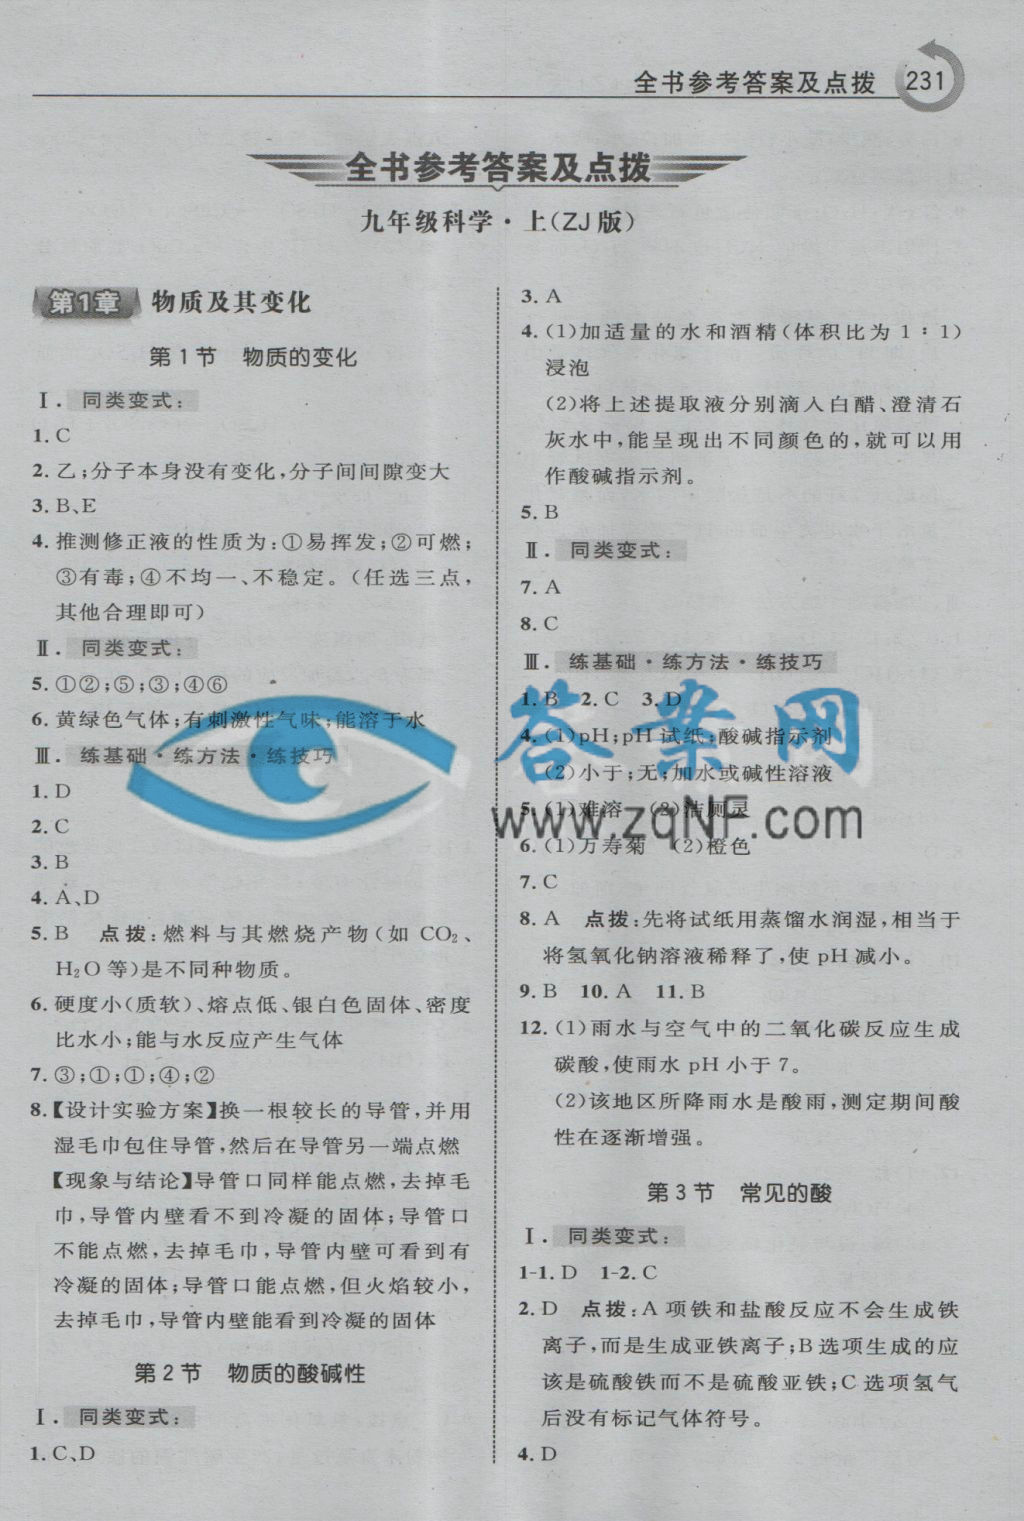 全书参考答案及点拨 231
全书参考答案及点拨
九年级科学·上(ZJ版)
第1章 物质及其变化
第1节 物质的变化
Ⅰ. 同类变式:
1. C
2. 乙;分子本身没有变化,分子间间隙变大
3. B、E
4. 推测修正液的性质为:①易挥发;②可燃;
③有毒;④不均一、不稳定。(任选三点,
其他合理即可)
Ⅱ. 同类变式:
5. ①②;⑤;③;④⑥
6. 黄绿色气体;有刺激性气味;能溶于水
Ⅲ. 练基础·练方法·练技巧
1. D
2. C
3. B
4. A、D
5. B 点拨:燃料与其燃烧产物(如 CO₂、
H₂O 等)是不同种物质。
6. 硬度小(质软)、熔点低、银白色固体、密度
比水小;能与水反应产生气体
7. ③;①;①;④;②
8.【设计实验方案】换一根较长的导管,并用
湿毛巾包住导管,然后在导管另一端点燃
【现象与结论】导管口同样能点燃,去掉毛
巾,导管内壁看不到冷凝的固体;导管口
不能点燃,去掉毛巾,导管内壁可看到有
冷凝的固体;导管口能点燃,但火焰较小,
去掉毛巾,导管内壁能看到冷凝的固体
第2节 物质的酸碱性
Ⅰ. 同类变式:
1. C、D
3. A
4. (1)加适量的水和酒精(体积比为 1∶1)
浸泡
(2)将上述提取液分别滴入白醋、澄清石
灰水中,能呈现出不同颜色的,就可以用
作酸碱指示剂。
5. B
Ⅱ. 同类变式:
7. A
8. C
Ⅲ. 练基础·练方法·练技巧
1. B 2. C 3. D
4. (1)pH;pH 试纸;酸碱指示剂
(2)小于;无;加水或碱性溶液
5. (1)难溶 (2)洁厕灵
6. (1)万寿菊 (2)橙色
7. C
8. A 点拨:先将试纸用蒸馏水润湿,相当于
将氢氧化钠溶液稀释了,使 pH 减小。
9. B 10. A 11. B
12. (1)雨水与空气中的二氧化碳反应生成
碳酸,使雨水 pH 小于 7。
(2)该地区所降雨水是酸雨,测定期间酸
性在逐渐增强。
第3节 常见的酸
Ⅰ. 同类变式:
1-1. D 1-2. C
2. D 点拨:A 项铁和盐酸反应不会生成铁
离子,而是生成亚铁离子;B选项生成的应
该是硫酸铁而不是硫酸亚铁;C 选项氢气
后没有标记气体符号。
4. D
答案网
www.zqNF.com